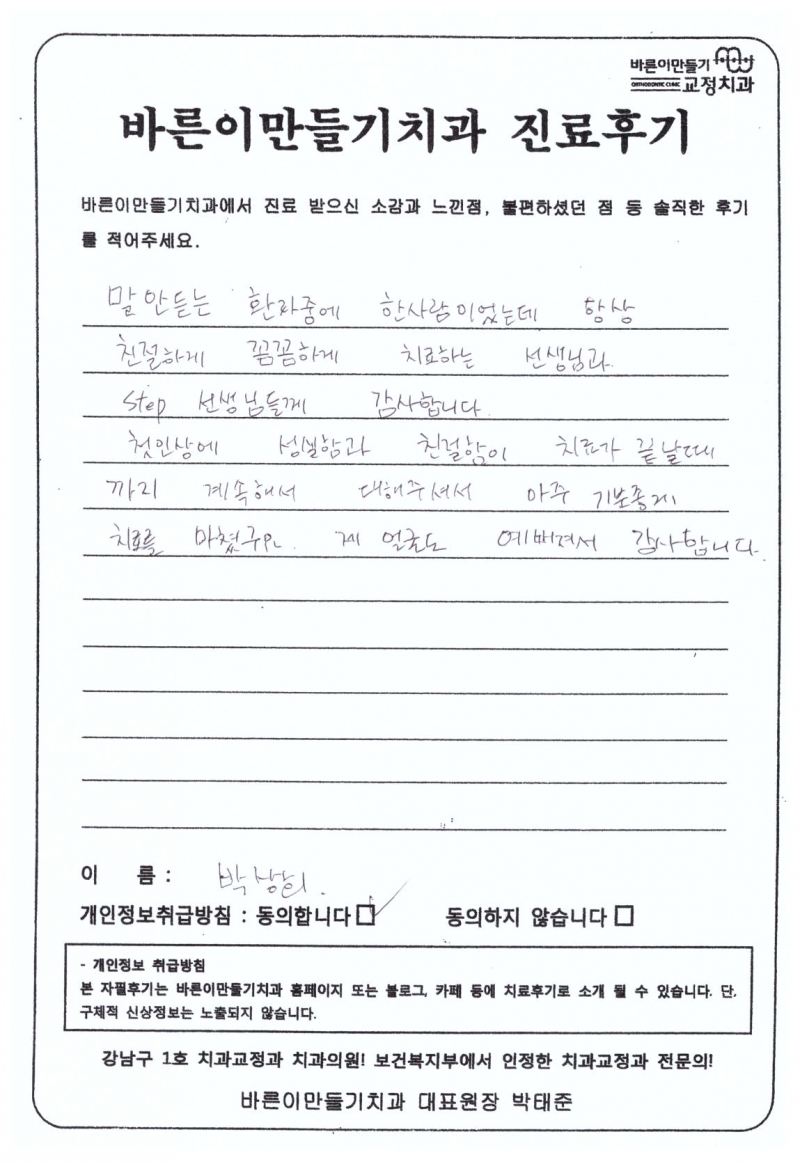 바른이만들기
ORTHODONTIC CLINIC 교정치과
바른이만들기치과 진료후기
바른이만들기치과에서 진료 받으신 소감과 느낀점, 불편하셨던 점 등 솔직한 후기
를 적어주세요.
말안듣는 환자중에 한사람이었는데 항상
친절하게 꼼꼼하게 치료하는 선생님과
step 선생님들께 감사합니다
첫인상에 성실함과 친절함이 치료가 끝날때
까지 계속해서 대해주셔서 아주 기분좋게
치료를 마쳤구요. 제 얼굴도 예뻐져서 감사합니다.
이 름 : 박상희.
개인정보취급방침 : 동의합니다 동의하지 않습니다
- 개인정보 취급방침
본 자필후기는 바른이만들기치과 홈페이지 또는 블로그, 카페 등에 치료후기로 소개 될 수 있습니다. 단,
구체적 신상정보는 노출되지 않습니다.
강남구 1호 치과교정과 치과의원! 보건복지부에서 인정한 치과교정과 전문의!
바른이만들기치과 대표원장 박태준